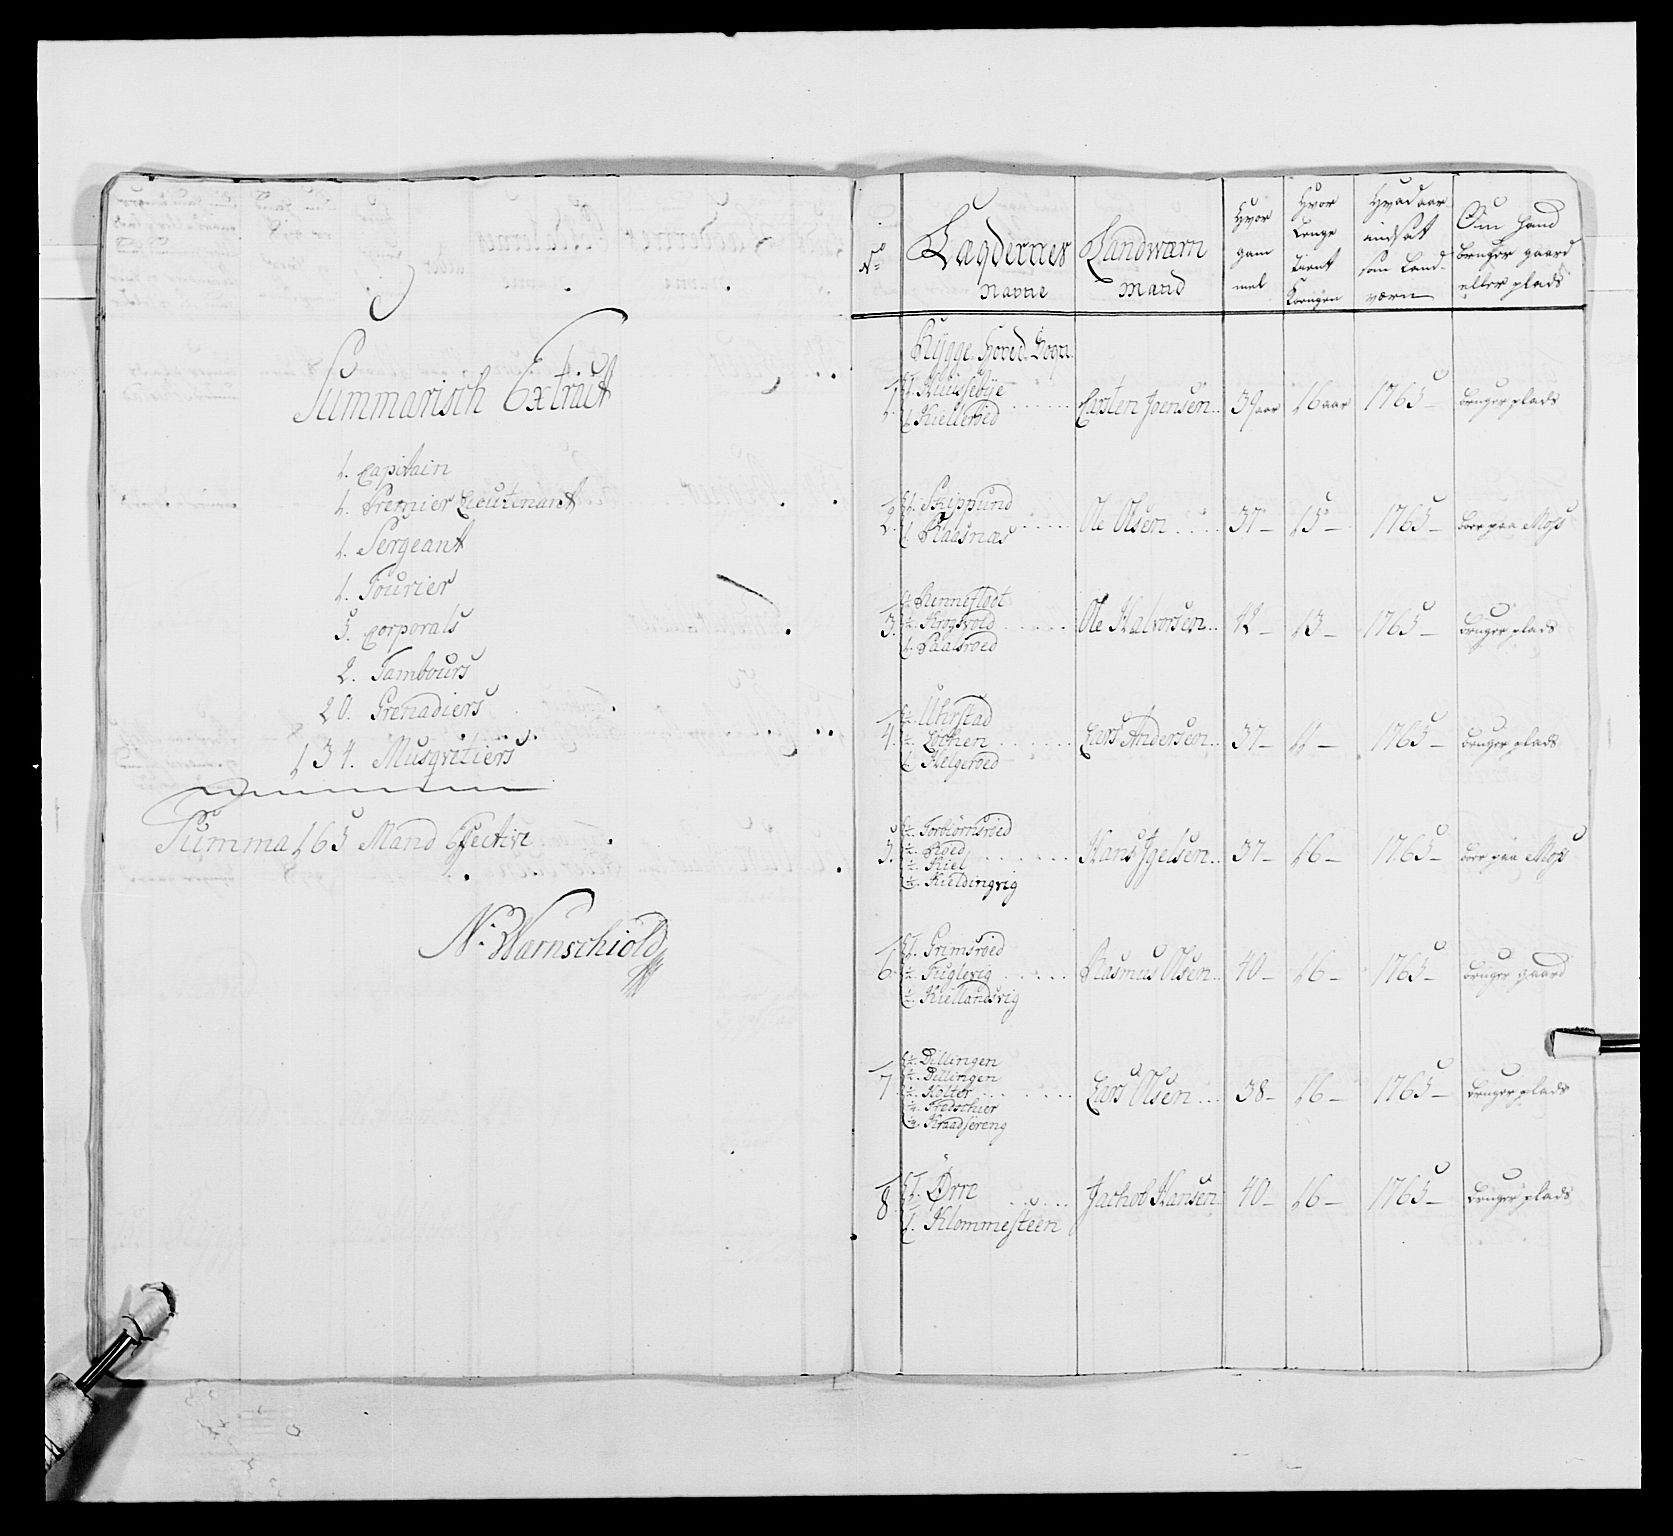 Summarisch Extract
1. Capitain
1. Premier Lieutnant
1. Sergeant
1. Fourier
5. Corporals
2. Tambours
20. Grenadiers
134. Musqvitiers
Summa 165 Mand Effective
N: Warnschiold
No
Lægdernes Navne
Landværn Mand
Hvor gammel
Hvor Lenge tient Kongen
Hvad aar indsat som Landværn
Om hand bruger gaard eller plads
Rygge Hoved Sogn
1. 1. Huusebye
1. Kiellerød
Carsten Joensen 39 aar 16 aar 1765 bruger plads
2. 1. Skippund
1. Kaasnæs
Ole Olsen 37 15 1765 boer paa Moss
3. Rennefloot
Krogsvold
1. Paalsrøed
Ole Halvorsen 42 13 1765 bruger plads
4. ½. Uhrstad
½. Lochen
1. Helgerøed
Lars Andersen 37 11 1765 bruger plads
5. ½. Torbiørnsrøed
½. Roed
½. Kiel
½. Kieldingvig
Hans Igelsen 37 16 1765 boer paa Moss
6. 1. Grimsrøed
½. Fuglevig
½. Kiellandsvig
Rasmus Olsen 40 16 1765 bruger gaard
7. ½. Dillingen
½. Dillingen
½. Holter
¼. Fredschier
¼. Kraadsereng
Lars Olsen 38 16 1765 bruger plads
8. 1. Ørre
1. Klommesteen
Jachob Hansen 40 16 1765 bruger plads